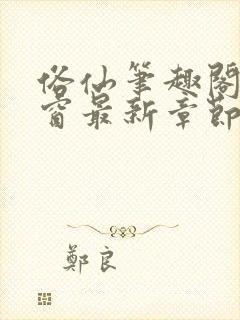 俗仙筆趣閣
窗最新章節
鄭良